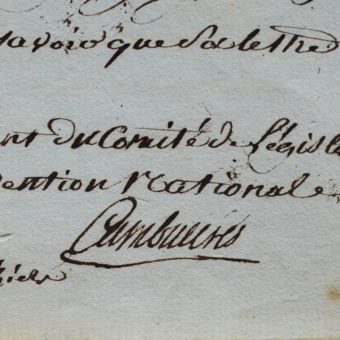 savoir que sa lettre
ent du Comité de Législ
vention nationale
Cambacérès